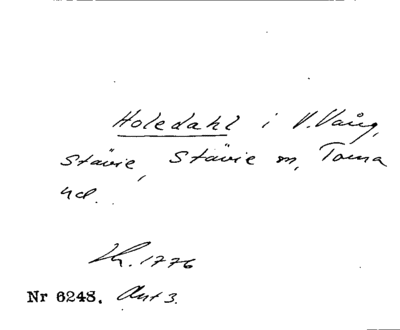 Holedahl i V. Vång,
Stävie, Stävie sn, Torna
hd.
Lh. 1776
Nr 6248. Akt 3.